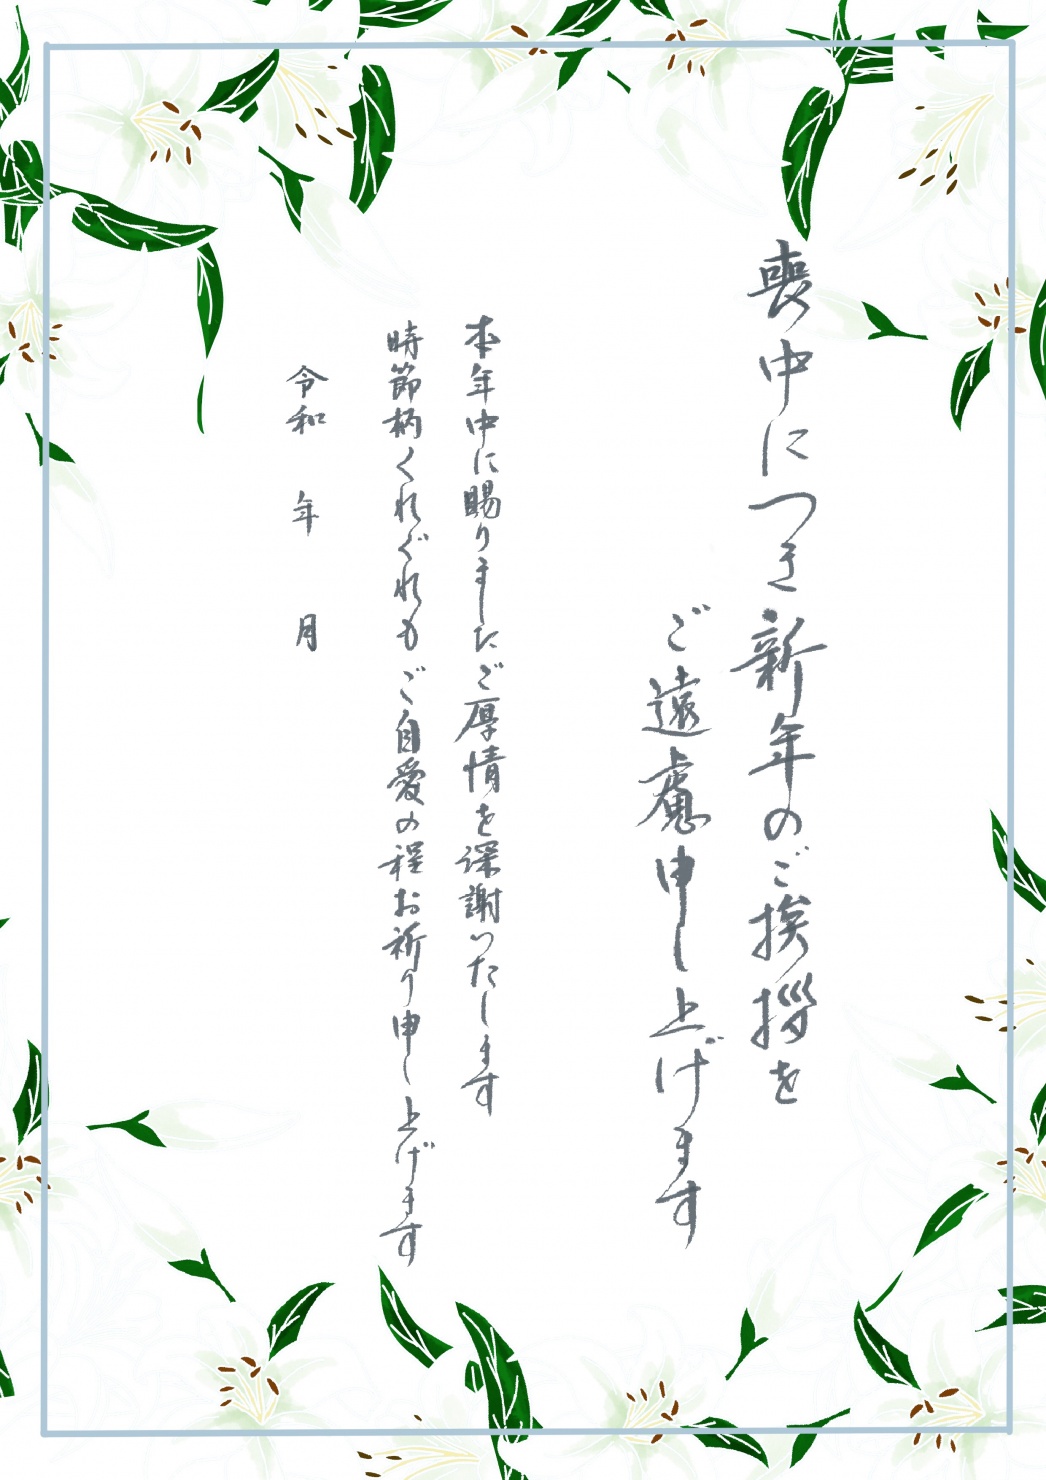 喪中につき新年のご挨拶を
ご遠慮申し上げます
本年中に賜りましたご厚情を深謝いたします
時節柄くれぐれもご自愛の程お祈り申し上げます
令和　年　月